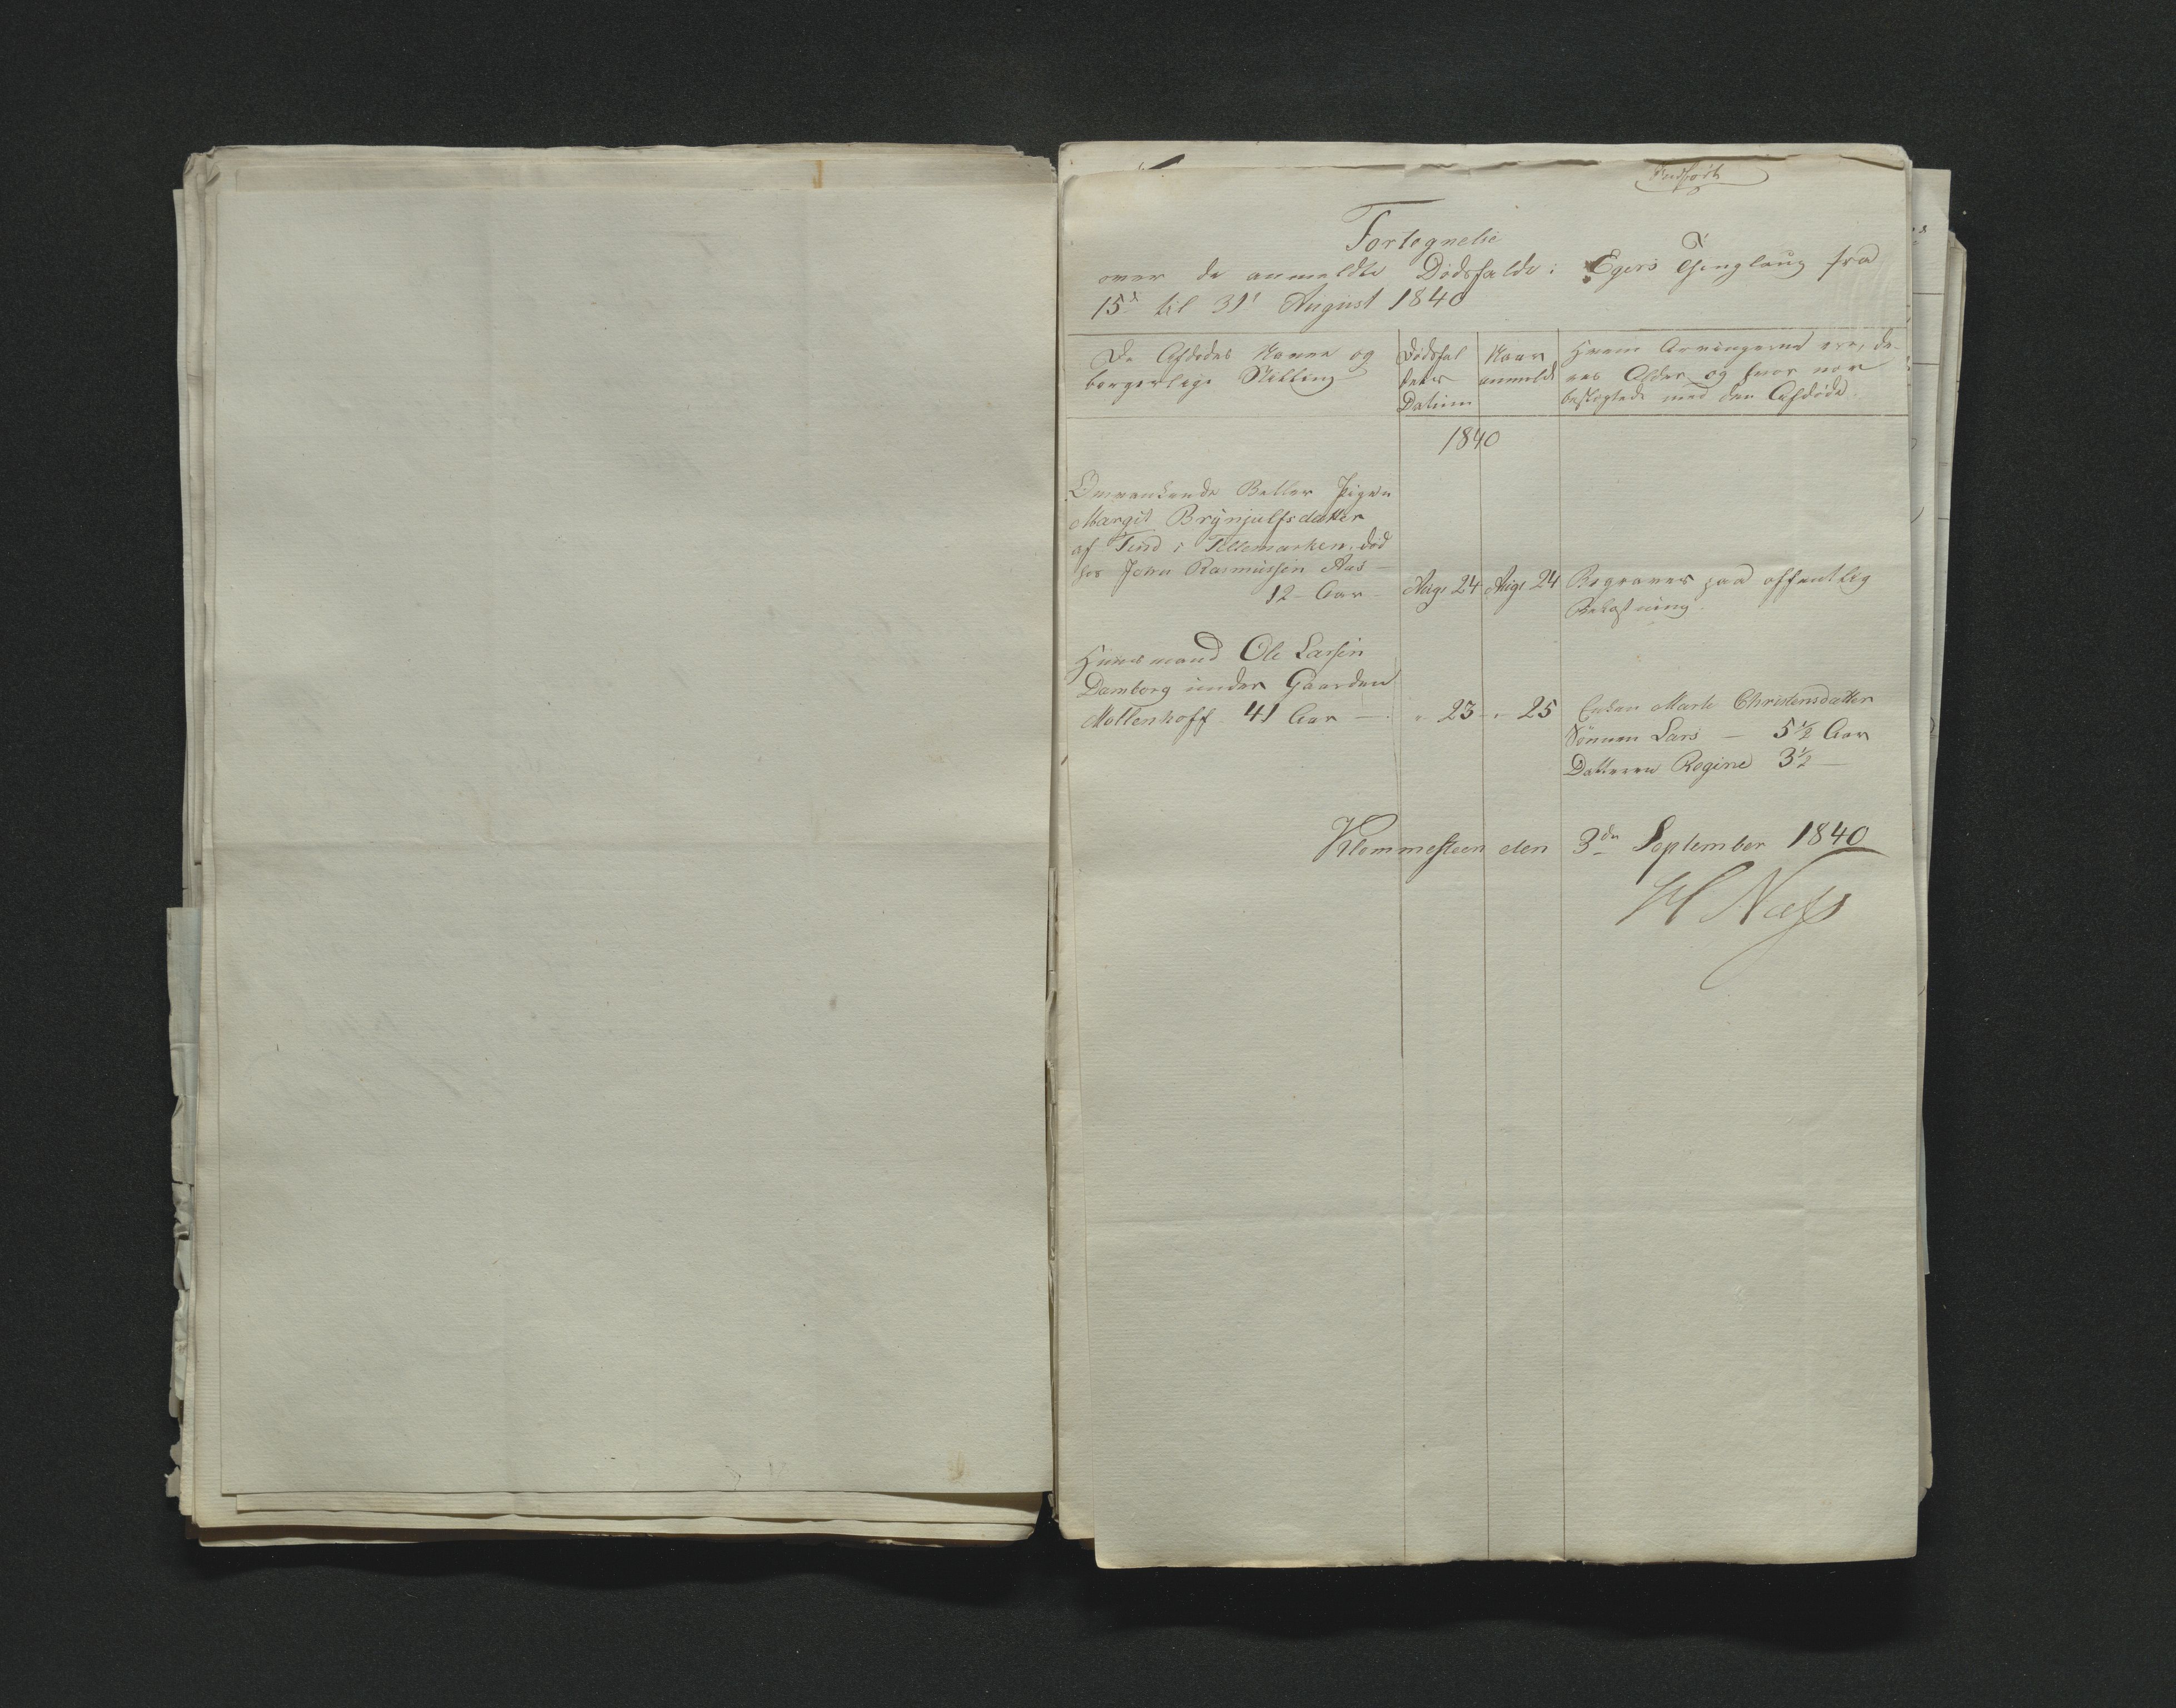 Indført
Fortegnelse
over de anmeldte Dødsfalde i Egers Thinglaug fra
15de til 31t August 1840
De Afdødes Navne og borgerlige Stilling
Dødsfaldets Datum
Naar anmeldt
Hvem Arvingerne ere, de-
res Alder og hvor nær
beslægtede med den Afdøde.
1840
Omvankende Betler Pigen
Margit Brynjulfsdatter
af Tind i Tellemarken, død
hos John Rasmussen Aas –
12 – Aar – Augs 24 Augs 24 Begraves paa offentlig
Bekostning.
Huusmand Ole Larsen
Damborg under Gaarden
Mollenhoff 41 Aar – " 23 – " 25 Enken Marte Christensdatter
Sønnen Lars – 5½ Aar
Datteren Regine 3½ –
Klommesteen den 3de September 1840
H Næss